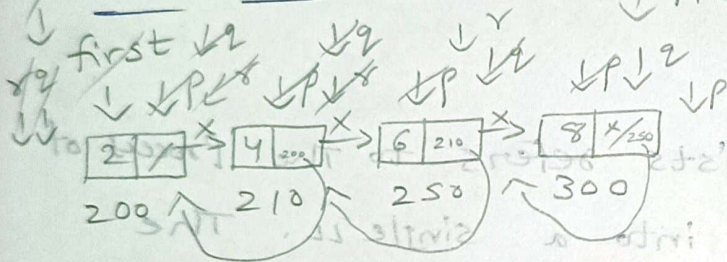 first q q r
r q p r p r p q p q p
2 / x 4 200 x 6 210 x 8 x/250
200 210 250 300